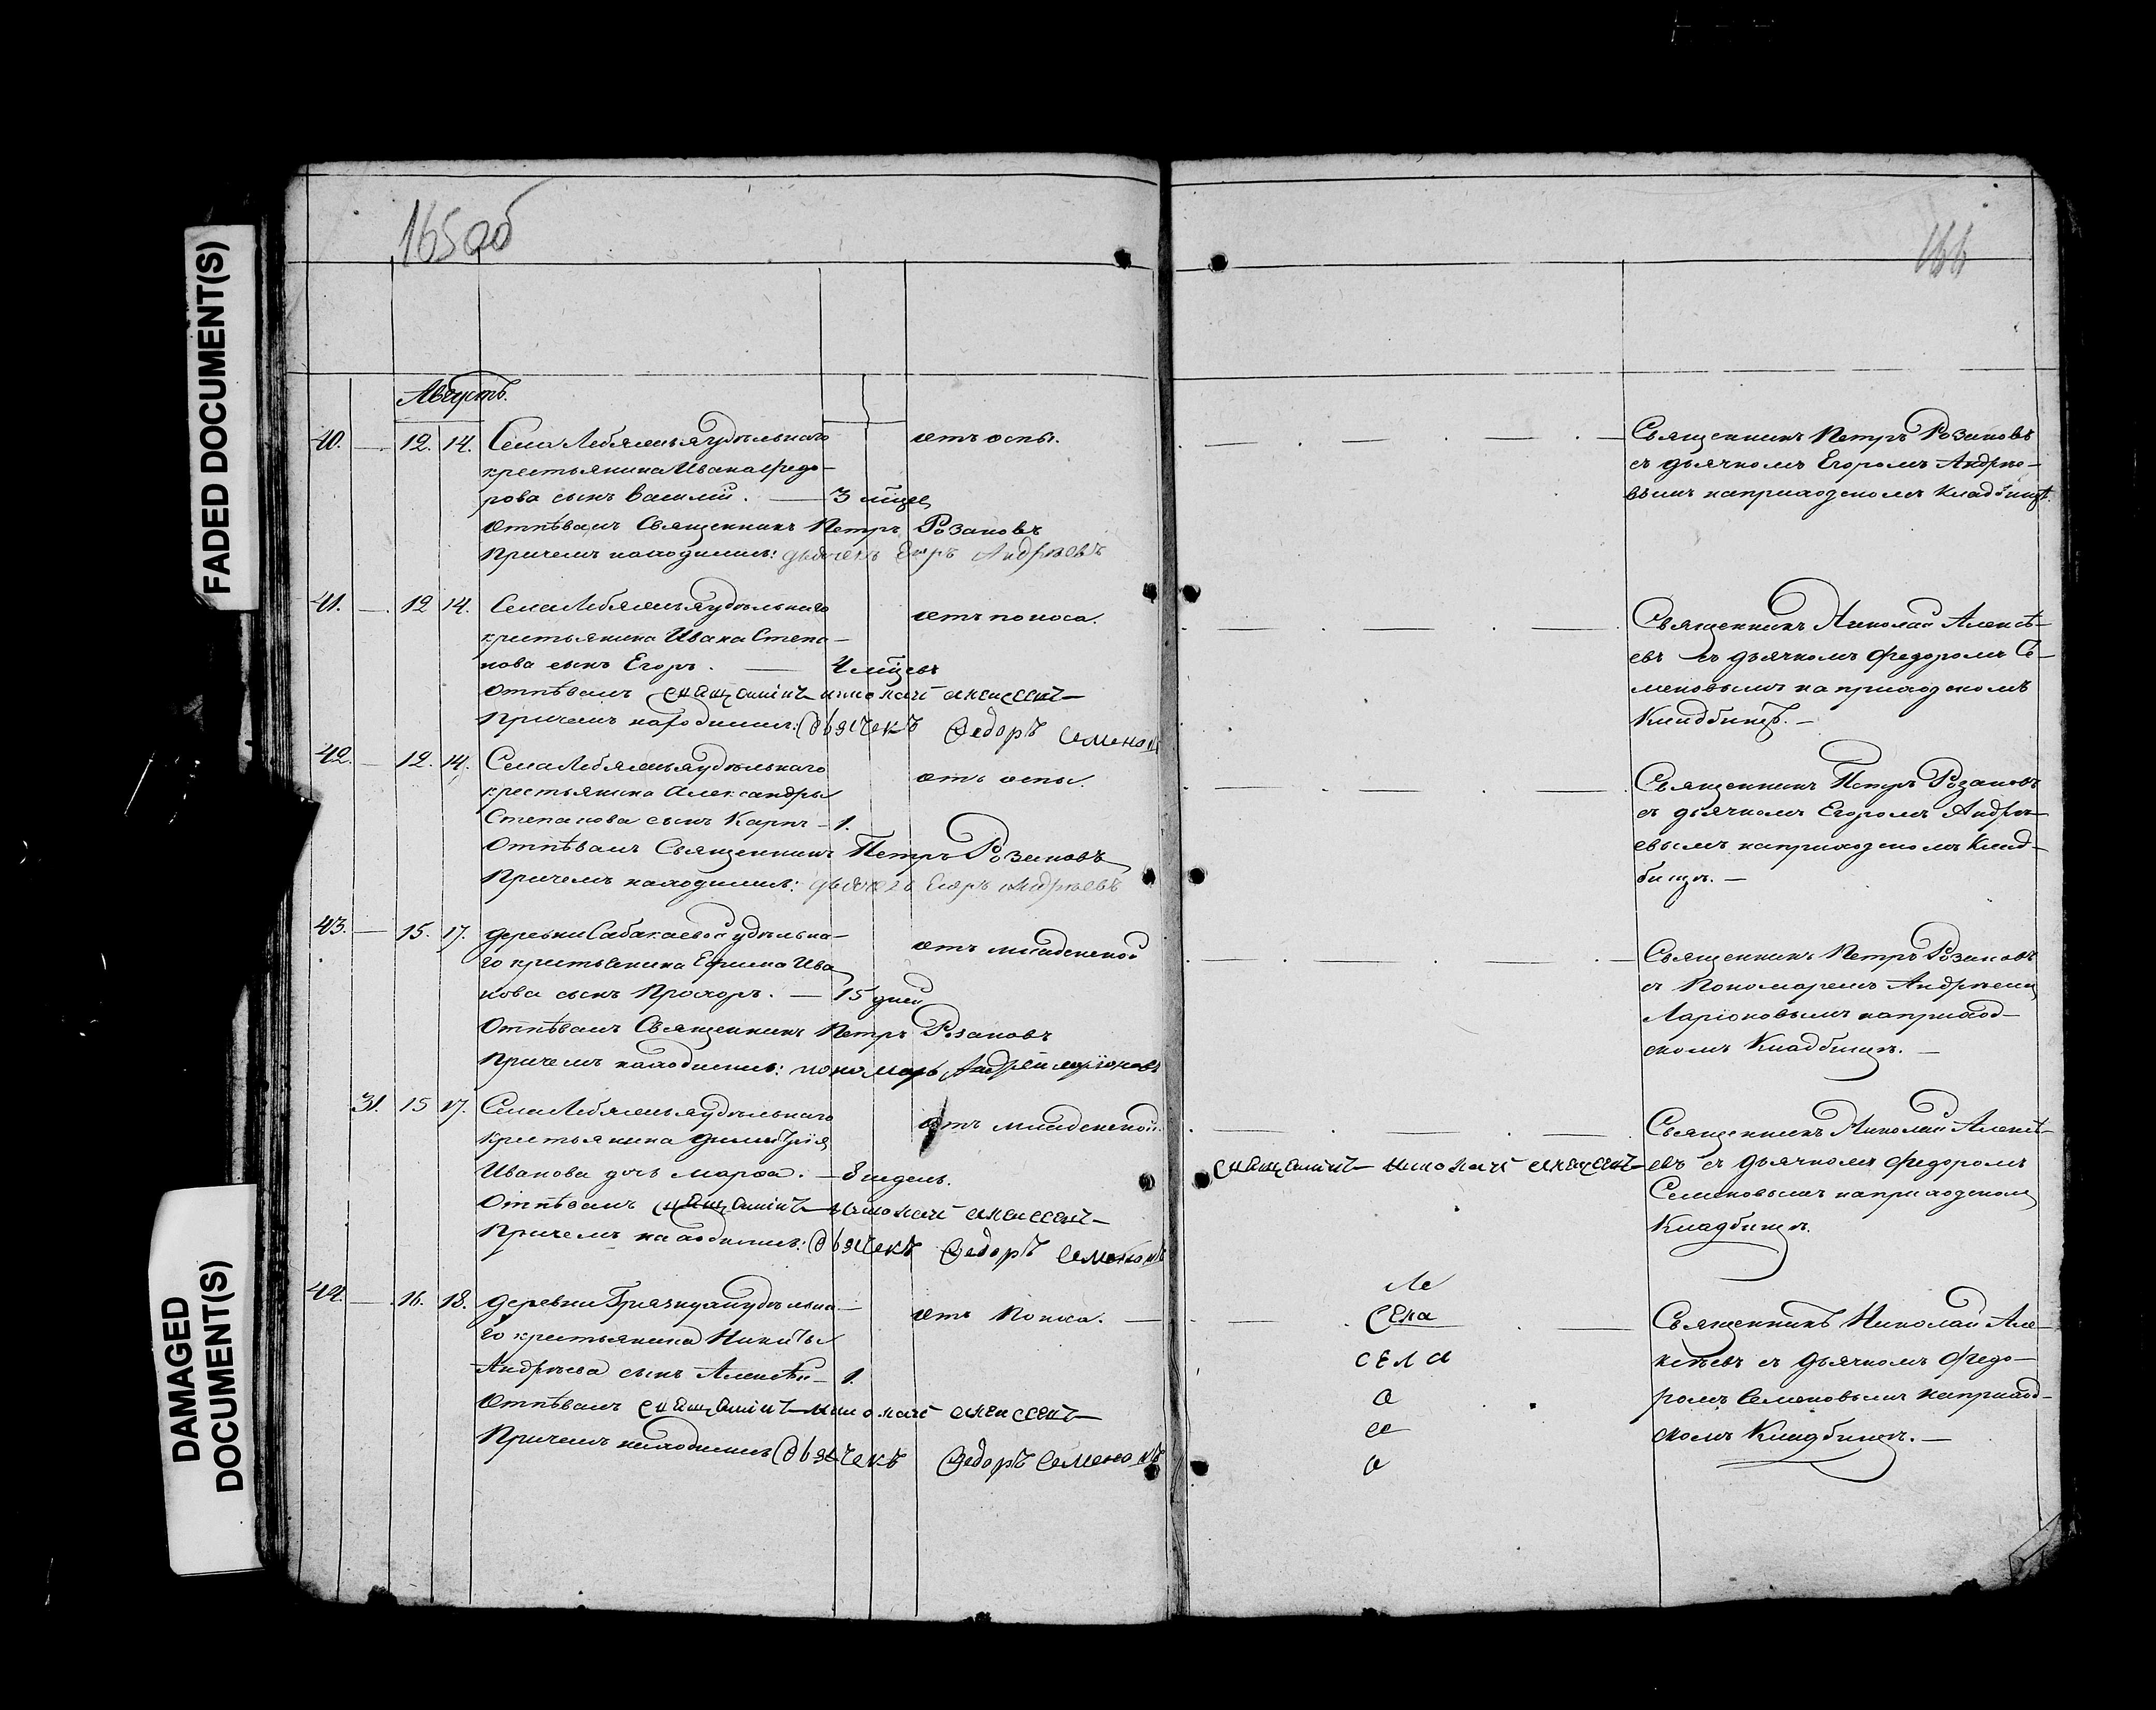 FADED DOCUMENT(S)
DAMAGED DOCUMENT(S)
165 об
166
Августъ.
40. — 12. 14. Села Лебяжья удѣльнаго
крестьянина Ивана Федо-
рова сынъ Василiй. — 3 мѣсеѵ
отъ оспы.
Отпѣвалъ Священникъ Петръ Розановъ
Причемъ находились: дьячекъ Егоръ Андрѣевъ
Священникъ Петръ Розановъ
съ дьячкомъ Егоромъ Андрѣе-
вымъ на приходскомъ кладбищѣ.
41. — 12 14. Села Лебяжья удѣльнаго
крестьянина Ивана Степа-
нова сынъ Егоръ. — 4 мѣсевъ
отъ поноса.
Отпѣвалъ священникъ николай алексеевъ
Причемъ находились: дьячекъ Федоръ Семеновъ
Священникъ Николай Алексѣ-
евъ съ дьячкомъ Федоромъ Се-
меновымъ на приходскомъ
Кладбищѣ. —
42. — 12. 14. Села Лебяжья удѣльнаго
крестьянина Александры
Степанова сынъ Карпъ — 1.
отъ оспы.
Отпѣвалъ Священникъ Петръ Розановъ
Причемъ находились: дьячекъ Егоръ Андрѣевъ
Священникъ Петръ Розановъ
съ дьячкомъ Егоромъ Андрѣ-
евымъ на приходскомъ Клад-
бищѣ. —
43. — 15. 17. деревни Сабакаевой удѣльна-
го крестьянина Ефима Ива
нова сынъ Прохоръ. — 15 дней
отъ младенской
Отпѣвалъ Священникъ Петръ Розановъ
Причемъ находились: пономарь Андрей Ларiоновъ
Священникъ Петръ Розановъ
съ Пономаремъ Андрѣемъ
Ларiоновымъ на приход-
скомъ Кладбищѣ. —
31. 15 17. Села Лебяжья удѣльнаго
Крестьянина Димитрiя
Иванова дочь Марфа. — 8 недель.
отъ младенской.
Отпѣвалъ священникъ николай алексеевъ
Причемъ находились: дьячекъ Федоръ Семеновъ
священникъ николай алексеевъ
Священникъ Николай Алексѣ-
евъ съ дьячкомъ Федоромъ
Семеновымъ на приходскомъ
Кладбищѣ.
44. — 16. 18. деревни Грязнухи удѣльна-
го крестьянина Никиты
Андрѣева сынъ Алексѣй — 1.
отъ Поноса. —
Отпѣвалъ священникъ николай алексеевъ
Причемъ находились дьячекъ Федоръ Семеновъ
Ле
села
села
а
ее
а
Священникъ Николай Але-
ксѣевъ съ дьячкомъ Федо-
ромъ Семеновымъ на приход-
скомъ Кладбищѣ. —